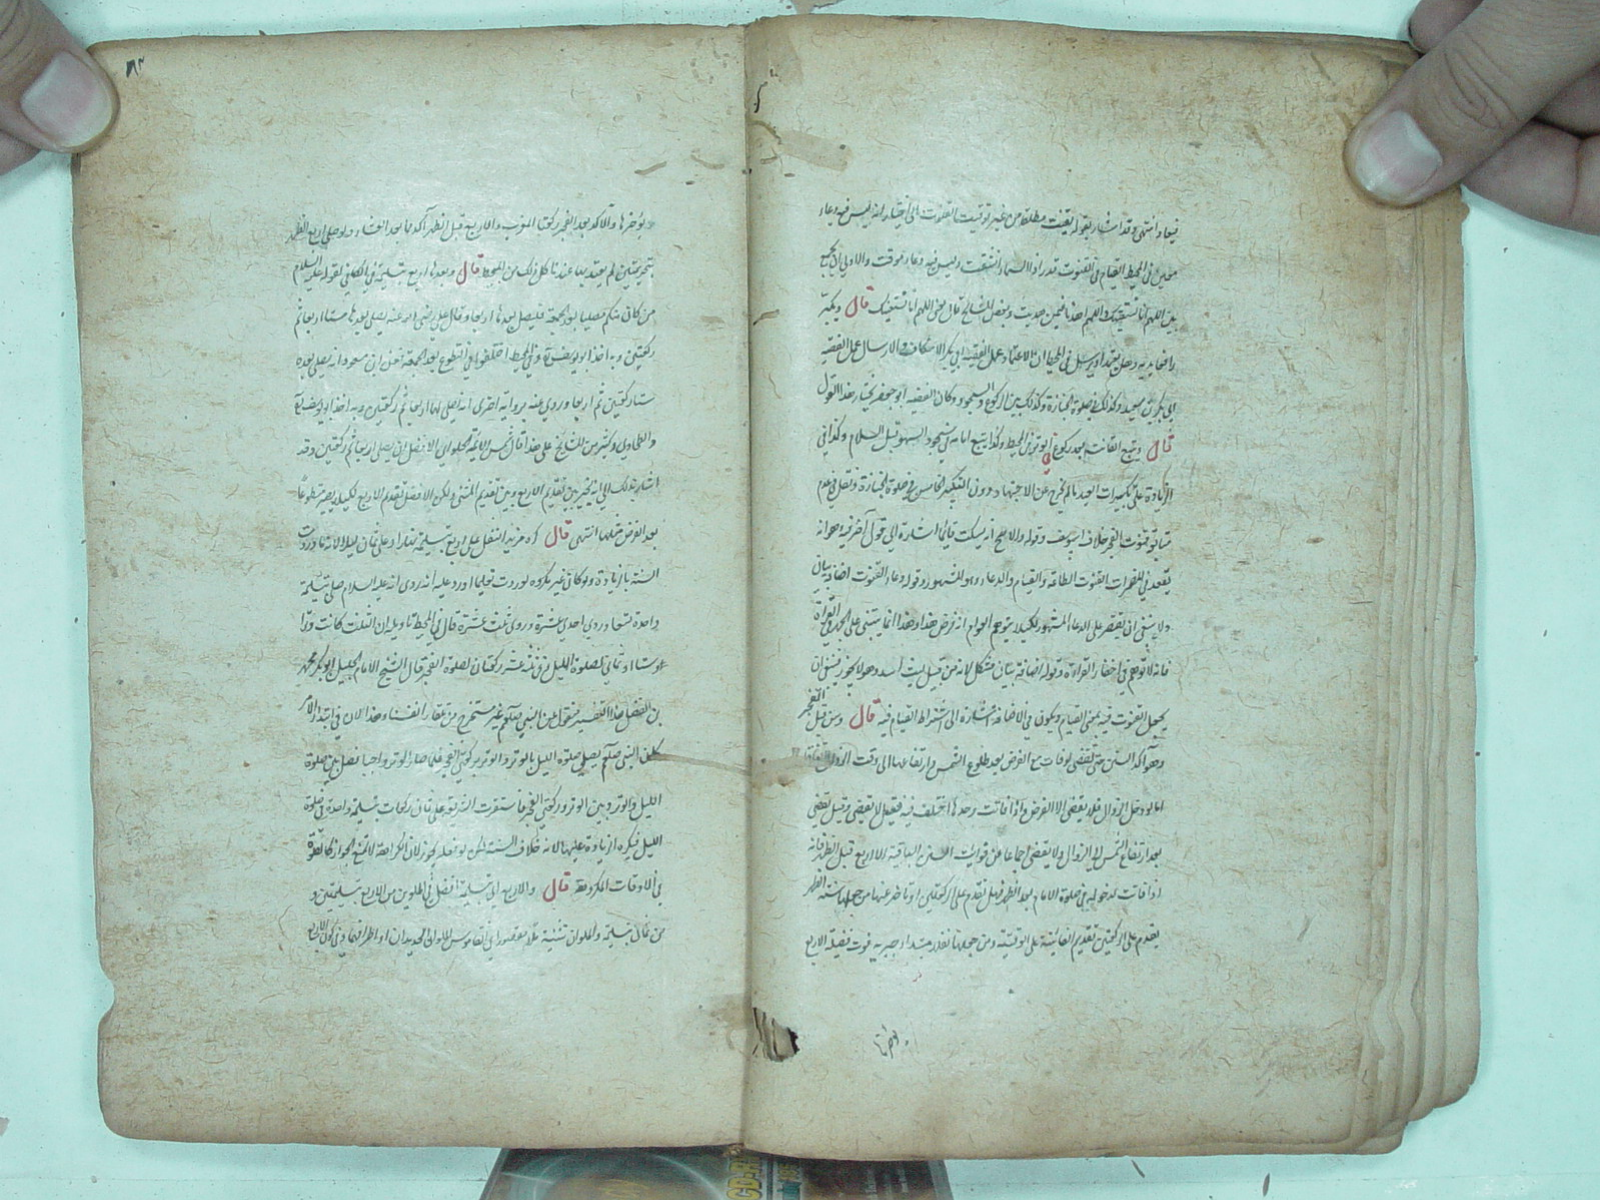 فيها دعاء انتهى وقد اشار بقوله يقنت مطلقا من غير توقيت القنوت الى اختيار انه ليس فيه دعاء
معين في المحيط القيام في القنوت قدر اذا السماء انشقت وليس فيه دعاء موقت والاولى ان يجمع
بين اللهم انا نستعينك اللهم اهدنا فيمن هديت وبعض المشايخ قال يقول اللهم انا نستعينك قال ويكبر
رافعا يديه وهل يعتمد او يرسل في المحيط ان الاعتماد عمل الفقيه ابي بكر الاسكاف والارسال عمل الفقيه
ابي بكر بن سعيد وكذلك في صلوة الجنازة وكذلك بين الركوع والسجود وكان الفقيه ابو جعفر يختار هذا القول
قال ويتبع القانت بعد ركوع الوتر في المحيط وكذا يتبع امامه في سجود السهو قبل السلام وكذا في
الزيادة على تكبيرات العيد ما لم يخرج عن الاجتهاد دون التكبير الخامس في صلوة الجنازة
متابع قنوت الفجر خلاف ابي يوسف وقوله والاصح انه يسكت قايما اشارة الى قول آخر فيه وهو انه
يقعد في المضمرات القنوت الطاعة والقيام والدعاء وهو المشهور وقوله دعاء القنوت اضافة بيان
ولا ينبغي ان يقتصر على الدعاء المشهور لكيلا يتوهم العوام انه فرض هذا وهذا انما
فانه لا توهم في اخفاء القراءة وقوله اضافة بيان مشكل لانه من قبيل ليث اسد وهو لا يجوز فينبغي ان
يجعل القنوت فيه بمعنى القيام ويكون في الاضافة اشارة الى اشتراط القيام فيه قال وسن قبل الفجر
وهو آكد السنن حتى تقضى لو فات مع الفرض بعد طلوع الشمس وارتفاعها الى وقت الزوال
اما لو دخل الزوال فلا يقضى الا الفرض واذا فاتت وحدها اختلف فيه فقيل لا يقضى وقيل يقضى
بعد ارتفاع الشمس الى الزوال ولا يقضى اجماعا من فوايت السنن الباقية الا اربع قبل الظهر فانه
اذا فاتت لدخوله في صلوة الامام بعد الظهر فهل تقدم على الركعتين او تاخر عنها سنة الظهر
يقدم على الركعتين تقديم الفائتة على الوقتية ومن جعلها نفلا مبتدا وجبر به فوت فضيلة الاربع
يؤخرها والآكد بعد الفجر ركعتا المغرب والاربع قبل الظهر آكد مما بعد العشاء ولو صلى اربع الظهر
بتحريمتين لم يعتد بها عندنا كل ذلك من المحيط قال وبعدها اربع بتسليمة في الكافي لقوله عليه السلام
من كان منكم مصليا بعد الجمعة فليصل بعدها اربعا وقال علي رضي الله عنه يصلي بعدها ستا اربعا ثم
ركعتين وبه اخذ ابو يوسف وفي المحيط اختلفوا في التطوع بعد الجمعة فعن ابن مسعود انه يصلي بعده
ستا ركعتين ثم اربعا وروي عنه برواية اخرى انه يصلي لها اربعا ثم ركعتين وبه اخذ ابو يوسف
والطحاوي وكثير من المشايخ على هذا قال شمس الائمة الحلواني الافضل ان يصلي اربعا ثم ركعتين وقد
اشار بذلك الى انه يخير بين تقديم الاربع وبين تقديم المثنى ولكن الافضل تقدم الاربع لكيلا يصير متطوعا
بعد الفرض مثلها انتهى قال كره مزيد النفل على اربع بتسليمة نهارا وعلى ثمان ليلا لانه ما وردت
السنة بالزيادة ولو كان غير مكروه لوردت تعليما اورد عليه انه روى انه عليه السلام صلى بتسليمة
واحدة تسعا وروي احدى عشرة وروي ثلث عشرة قال في المحيط تاويله ان الثلث كانت وترا
وستا او ثماني لصلوة الليل وفي ثلثة عشر ركعتان لصلوة الفجر قال الشيخ الامام الجليل ابو بكر محمد
بن الفضل هذا التفسير منقول عن النبي صلعم غير مستخرج من تلقاء انفسنا وهذا لان في ابتداء الامر
كان النبي صلعم يصلي صلوة الليل بالوتر والوتر بركعتي الفجر فلما صار الوتر واجبا فصل بين صلوة
الليل والوتر وبين الوتر وركعتي الفجر فاستقرت الشريعة على ثمان ركعات بتسليمة واحدة في صلوة
الليل فيكره الزيادة عليها لانه خلاف السنة لكن لو فعله يجوز لان الكراهة لا تمنع الجواز كالصلوة
في الاوقات المكروهة قال والاربع الى تسليمة افضل في الملوين من الاربع بتسليمتين و
من ثمان بتسليمة والملوان تثنية ملا مقصورا في القاموس الملوان الجديدان او طرفاهما وفي كون الاربع